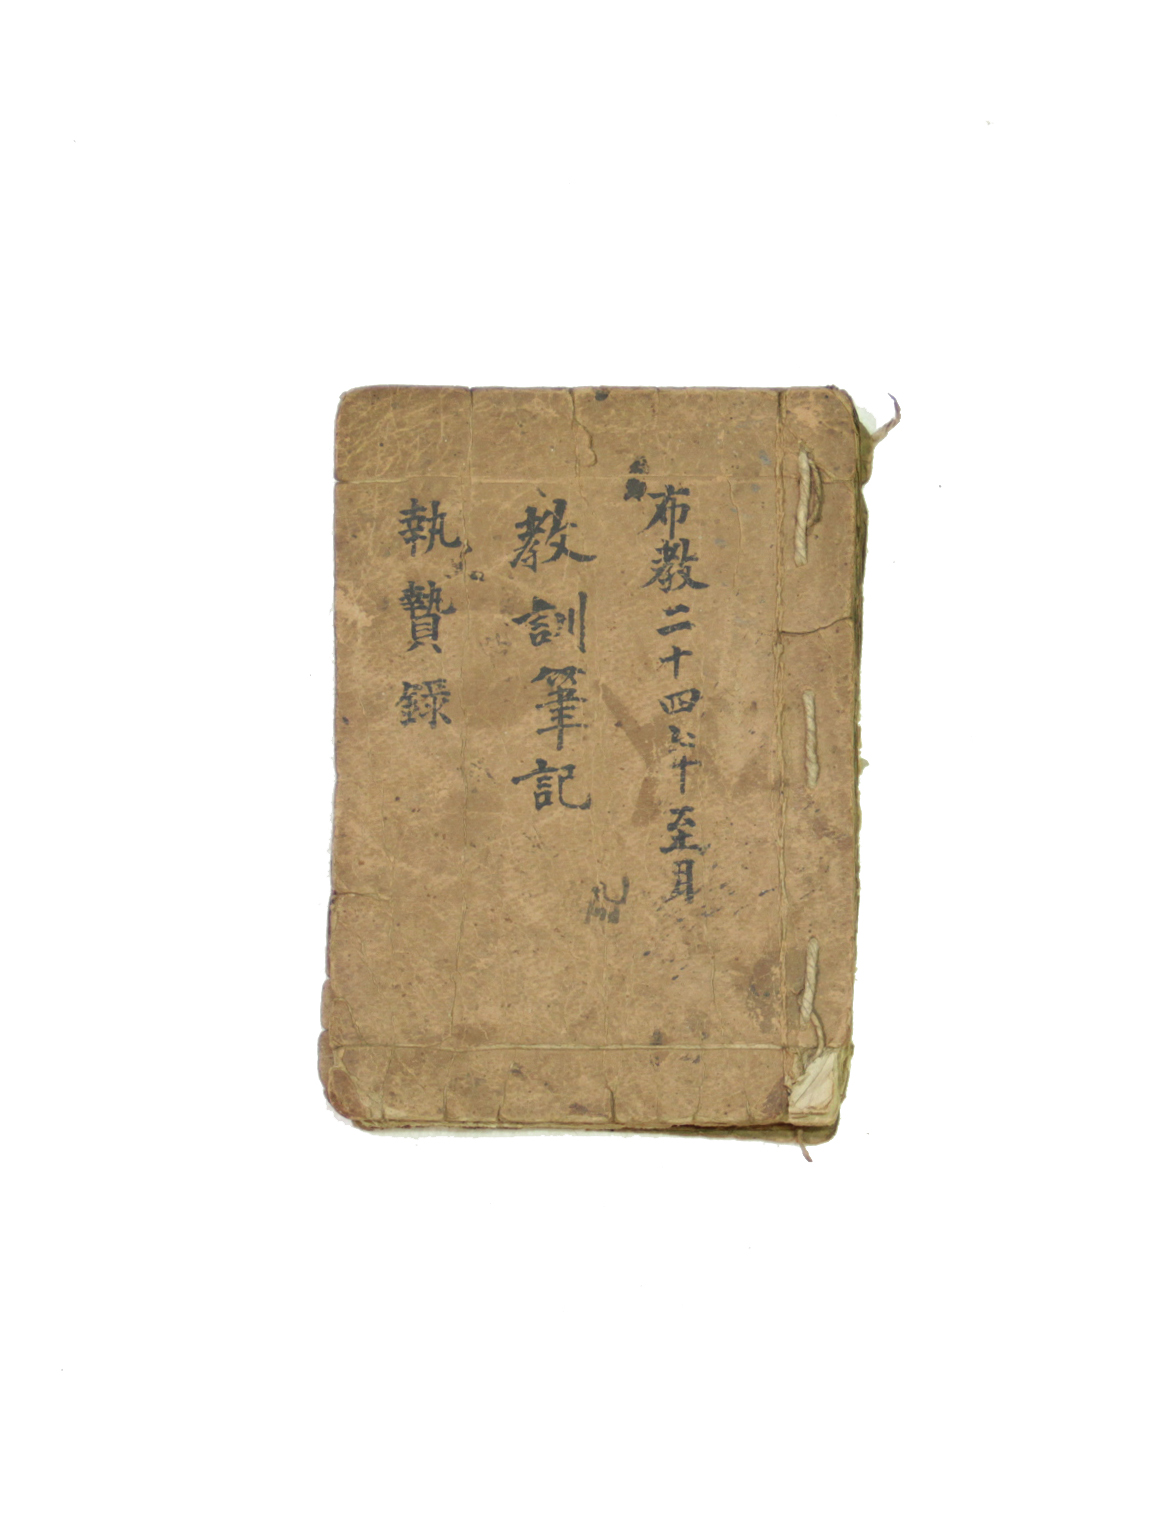 布教二十四年至月
教訓筆記
執贄錄